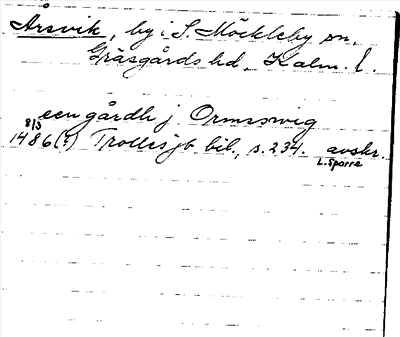 Årsvik, by i S. Möckleby sn,
Gräsgårds hd, Kalm. l.
een gårdh j Ormsswig
8/3 1486(?) Trolles jb bil., s. 234. avskr.
L. Sparre